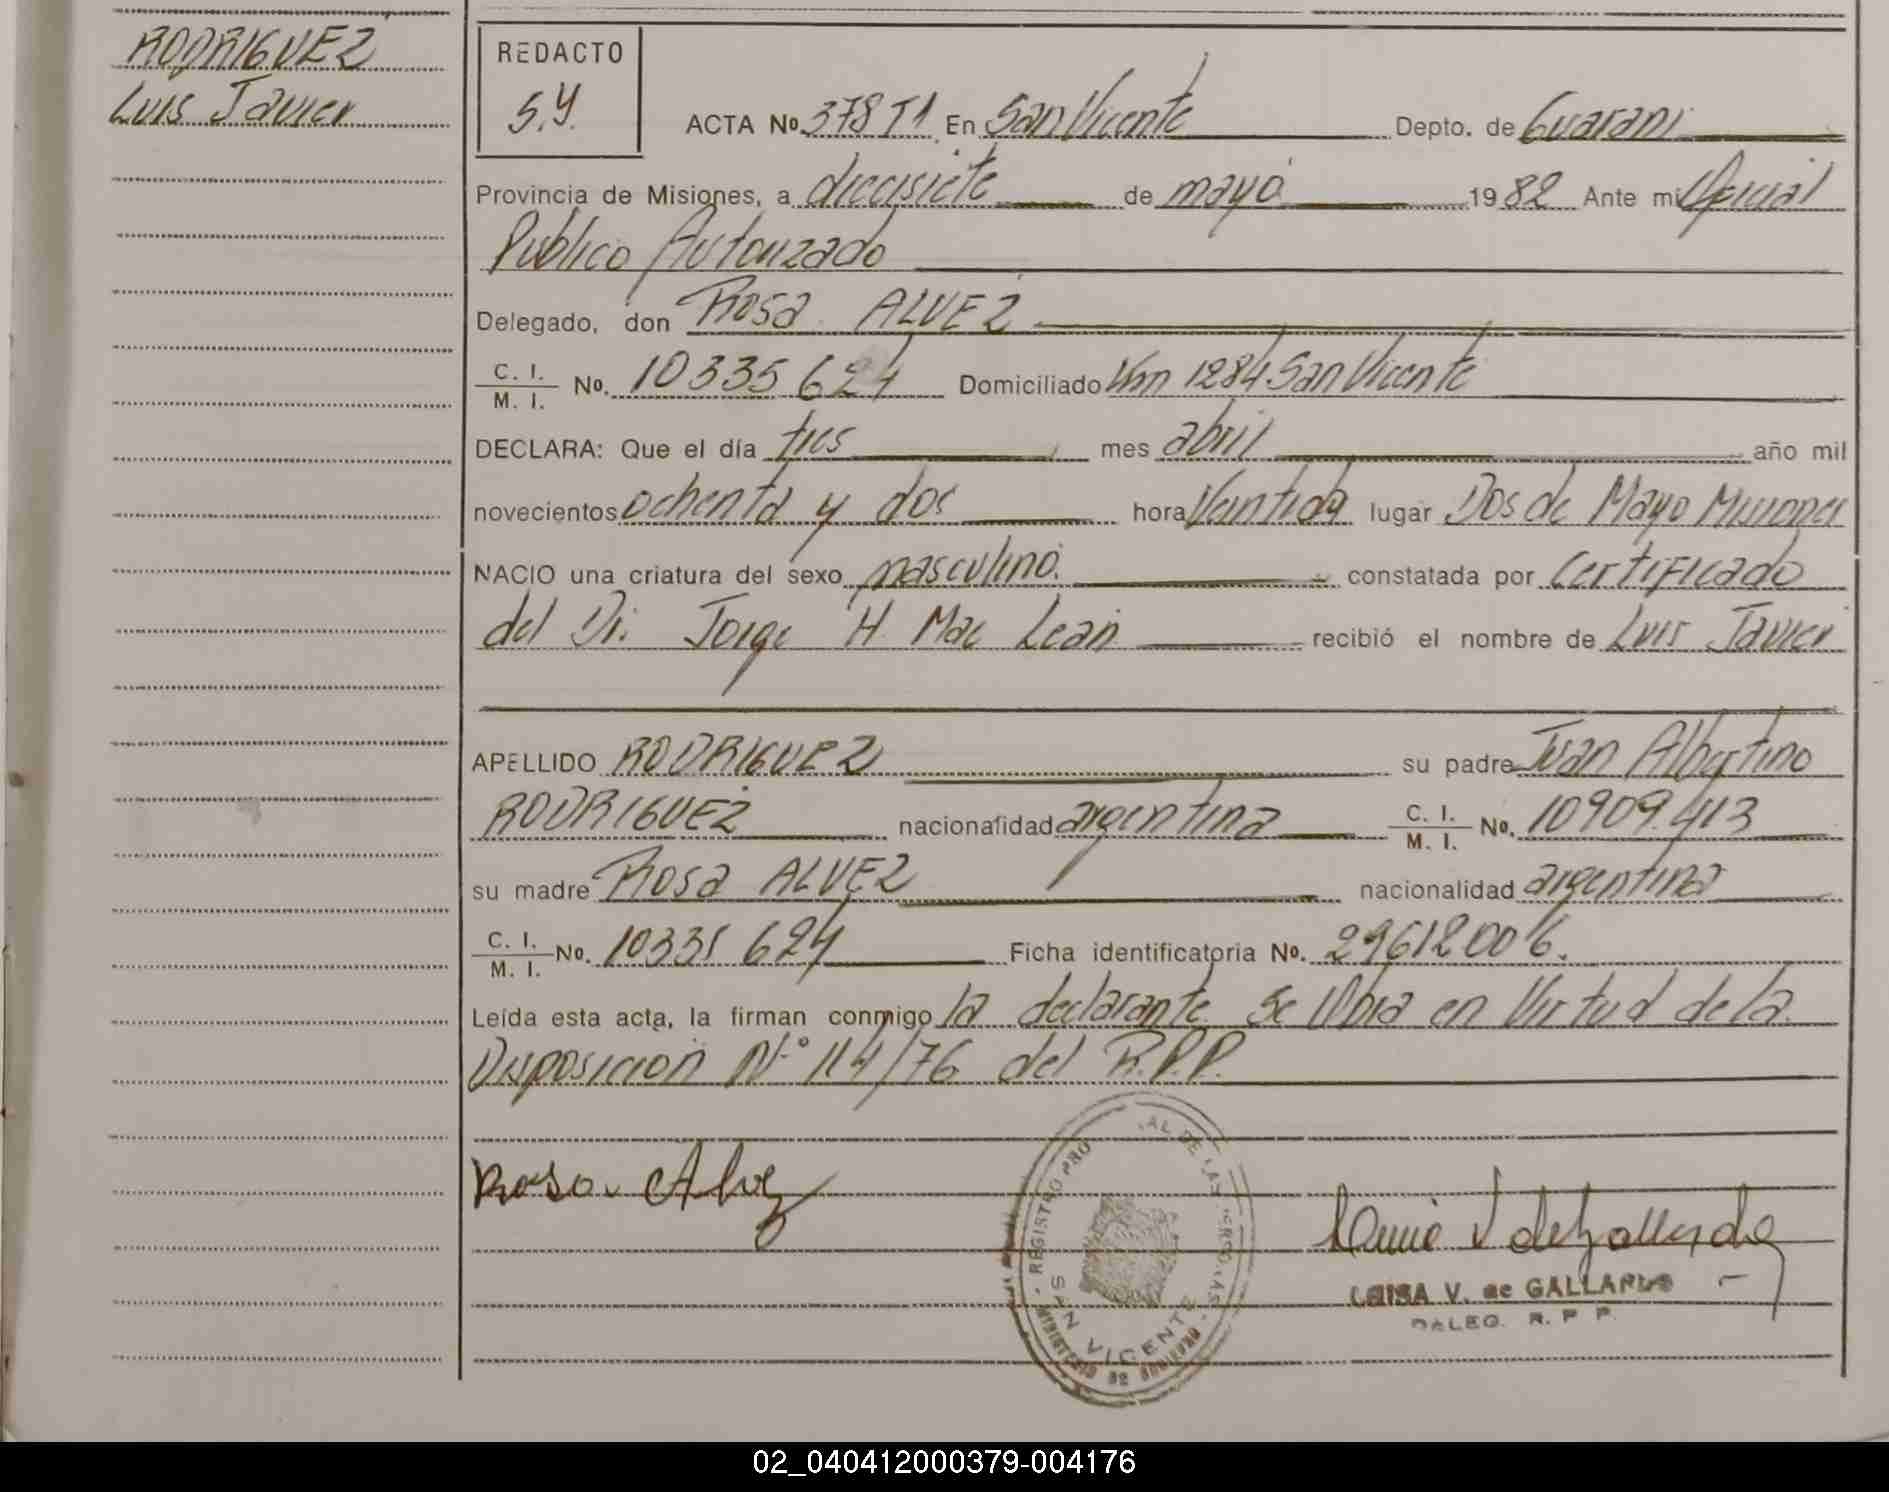 RODRIGUEZ
Luis Javier
REDACTO
S.Y.
ACTA No. 378 T1 En San Vicente Depto. de Guarani
Provincia de Misiones, a diecisiete de mayo 1982 Ante mi Oficial
Publico Autorizado
Delegado, don Rosa ALVEZ
C. I. / M. I. No. 10335 624 Domiciliado Km 1284 San Vicente
DECLARA: Que el día tres mes abril año mil
novecientos ochenta y dos hora lugar Dos de Mayo Misiones
NACIO una criatura del sexo masculino. constatada por Certificado
del Dr. Jorge H Mac Lean recibió el nombre de Luis Javier
APELLIDO RODRIGUEZ su padre Juan Albertino
RODRIGUEZ nacionalidad argentina C. I. / M. I. No. 10909.413
su madre Rosa ALVEZ nacionalidad argentina
C. I. / M. I. No. 10335 624 Ficha identificatoria No. 29612006.
Leída esta acta, la firman conmigo la declarante. Se labra en Virtud de la
Disposicion N° 114/76 del R.P.P.
Rosa Alvez
REGISTRO PRO AL DE LAS PERSONAS
SAN VICENTE
MINISTERIO DE GOBIERNO
LUISA V. de GALLARDO
DALEG. R. P P.
02_040412000379-004176